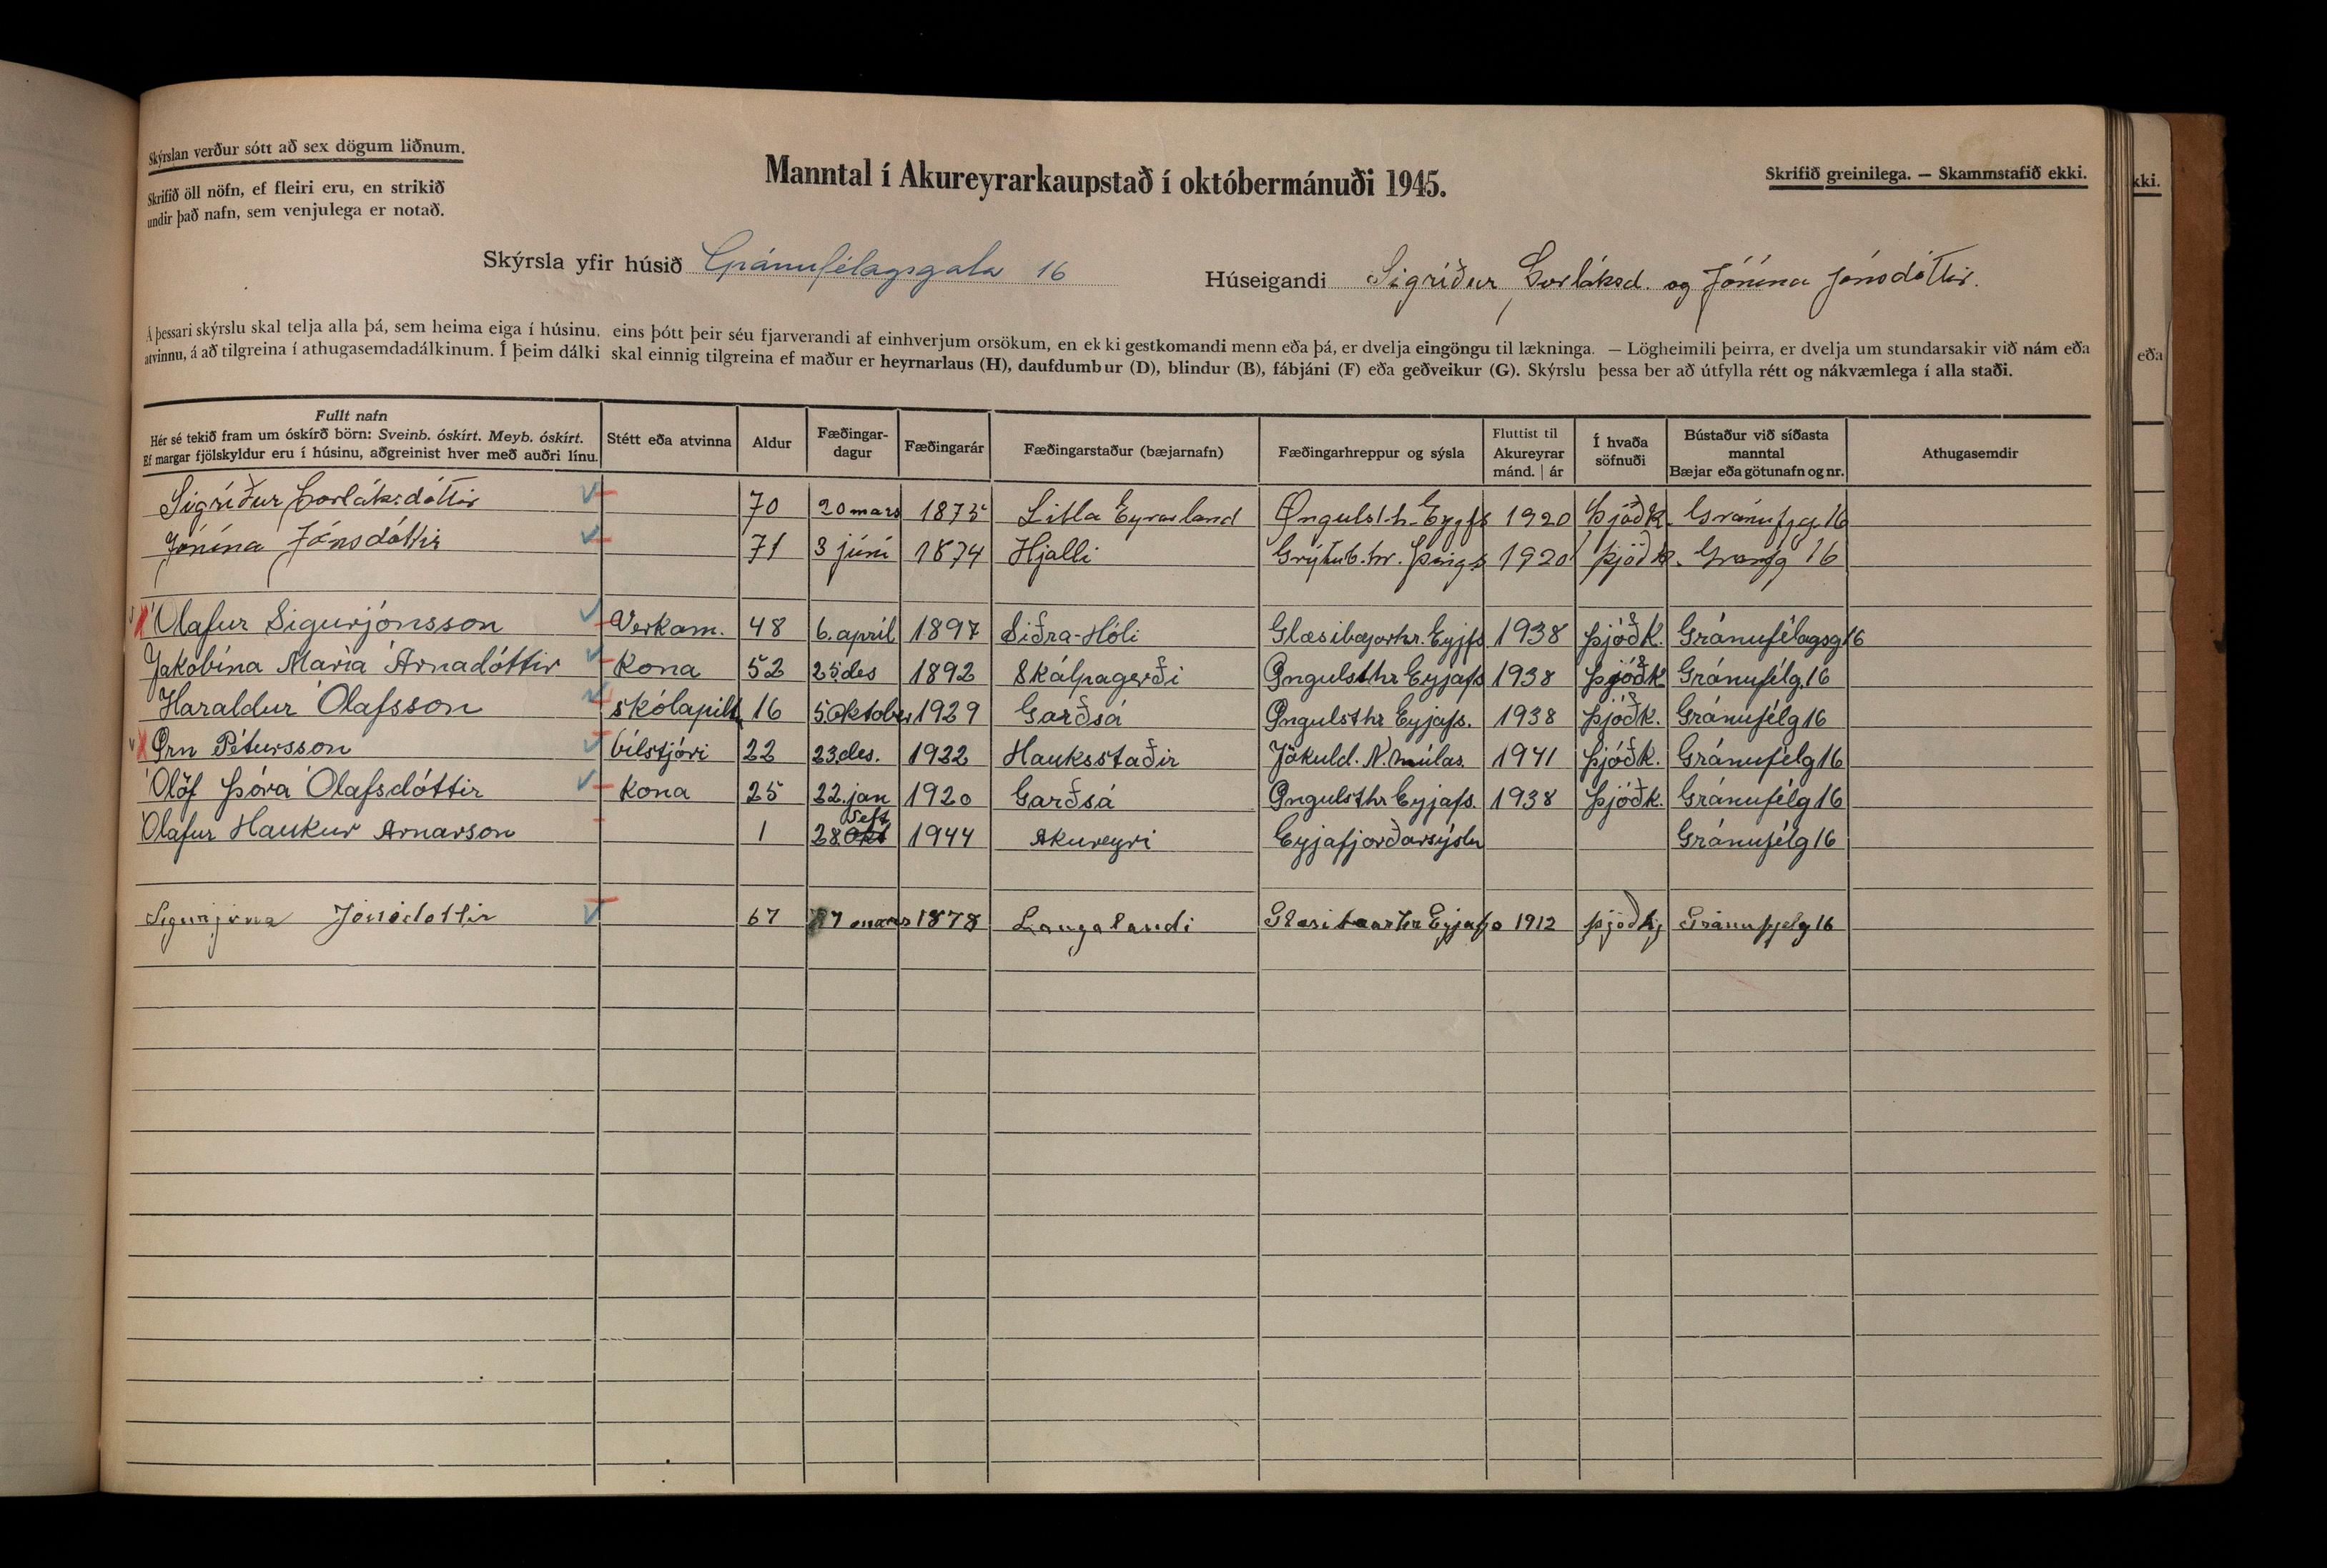 Skýrslan verður sótt að sex dögum liðnum.
Skrifið öll nöfn, ef fleiri eru, en strikið
undir það nafn, sem venjulega er notað.
Manntal í Akureyrarkaupstað í októbermánuði 1945.
Skrifið greinilega. — Skammstafið ekki.
kki.
Skýrsla yfir húsið Gránufélagsgata 16
Húseigandi Sigríður Þorláksd. og Jónína Jónsdóttir.
Á þessari skýrslu skal telja alla þá, sem heima eiga í húsinu, eins þótt þeir séu fjarverandi af einhverjum orsökum, en ekki gestkomandi menn eða þá, er dvelja eingöngu til lækninga. — Lögheimili þeirra, er dvelja um stundarsakir við nám eða
atvinnu, á að tilgreina í athugasemdadálkinum. Í þeim dálki skal einnig tilgreina ef maður er heyrnarlaus (H), daufdumbur (D), blindur (B), fábjáni (F) eða geðveikur (G). Skýrslu þessa ber að útfylla rétt og nákvæmlega í alla staði.
eða
Fullt nafn
Hér sé tekið fram um óskírð börn: Sveinb. óskírt. Meyb. óskírt.
Ef margar fjölskyldur eru í húsinu, aðgreinist hver með auðri línu.
Stétt eða atvinna
Aldur
Fæðingar-
dagur
Fæðingarár
Fæðingarstaður (bæjarnafn)
Fæðingarhreppur og sýsla
Fluttist til
Akureyrar
mánd. | ár
Í hvaða
söfnuði
Bústaður við síðasta
manntal
Bæjar eða götunafn og nr.
Athugasemdir
Sigríður Þorláksdóttir 70 20 mars 1875 Litla Eyrarland Öngulst.h. Eyjfs 1920 Þjóðk. Gránufjg. 16
Jónína Jónsdóttir 71 3 júní 1874 Hjalli Grýtub.hr. Þings 1920 Þjóðk. Granfg 16
Ólafur Sigurjónsson Verkam. 48 6. apríl 1897 Siðra-Hóli Glæsibæjarhr. Eyjfs 1938 Þjóðk. Gránufélagsg 16
Jakobína María Árnadóttir Kona 52 25 des 1892 Skálpagerði Öngulsthr Eyjafs 1938 Þjóðk Gránufélg. 16
Haraldur Ólafsson skólapilt 16 5 Oktober 1929 Garðsá Öngulsthr Eyjafs. 1938 Þjóðk. Gránufélg 16
Örn Pétursson bílstjóri 22 23. des. 1922 Hauksstaðir Jökuld. N. múlas. 1941 Þjóðk. Gránufélg 16
Ólöf Þóra Ólafsdóttir Kona 25 22. jan 1920 Garðsá Öngulsthr Eyjafs. 1938 Þjóðk. Gránufélg 16
Ólafur Haukur Arnarson 1 28. Okt Sept 1944 Akureyri Eyjafjorðarsýslu Gránufélg 16
Sigurjóna Jónsdottir 67 17 mars 1878 Laugalandi Eyjafjs 1912 þjóðkj Gránufjelg 16